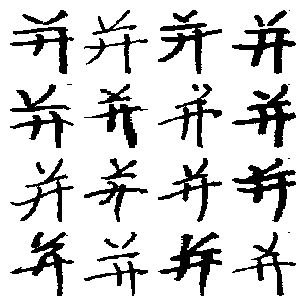 并并并并
并并并并
并并并并
并并并并